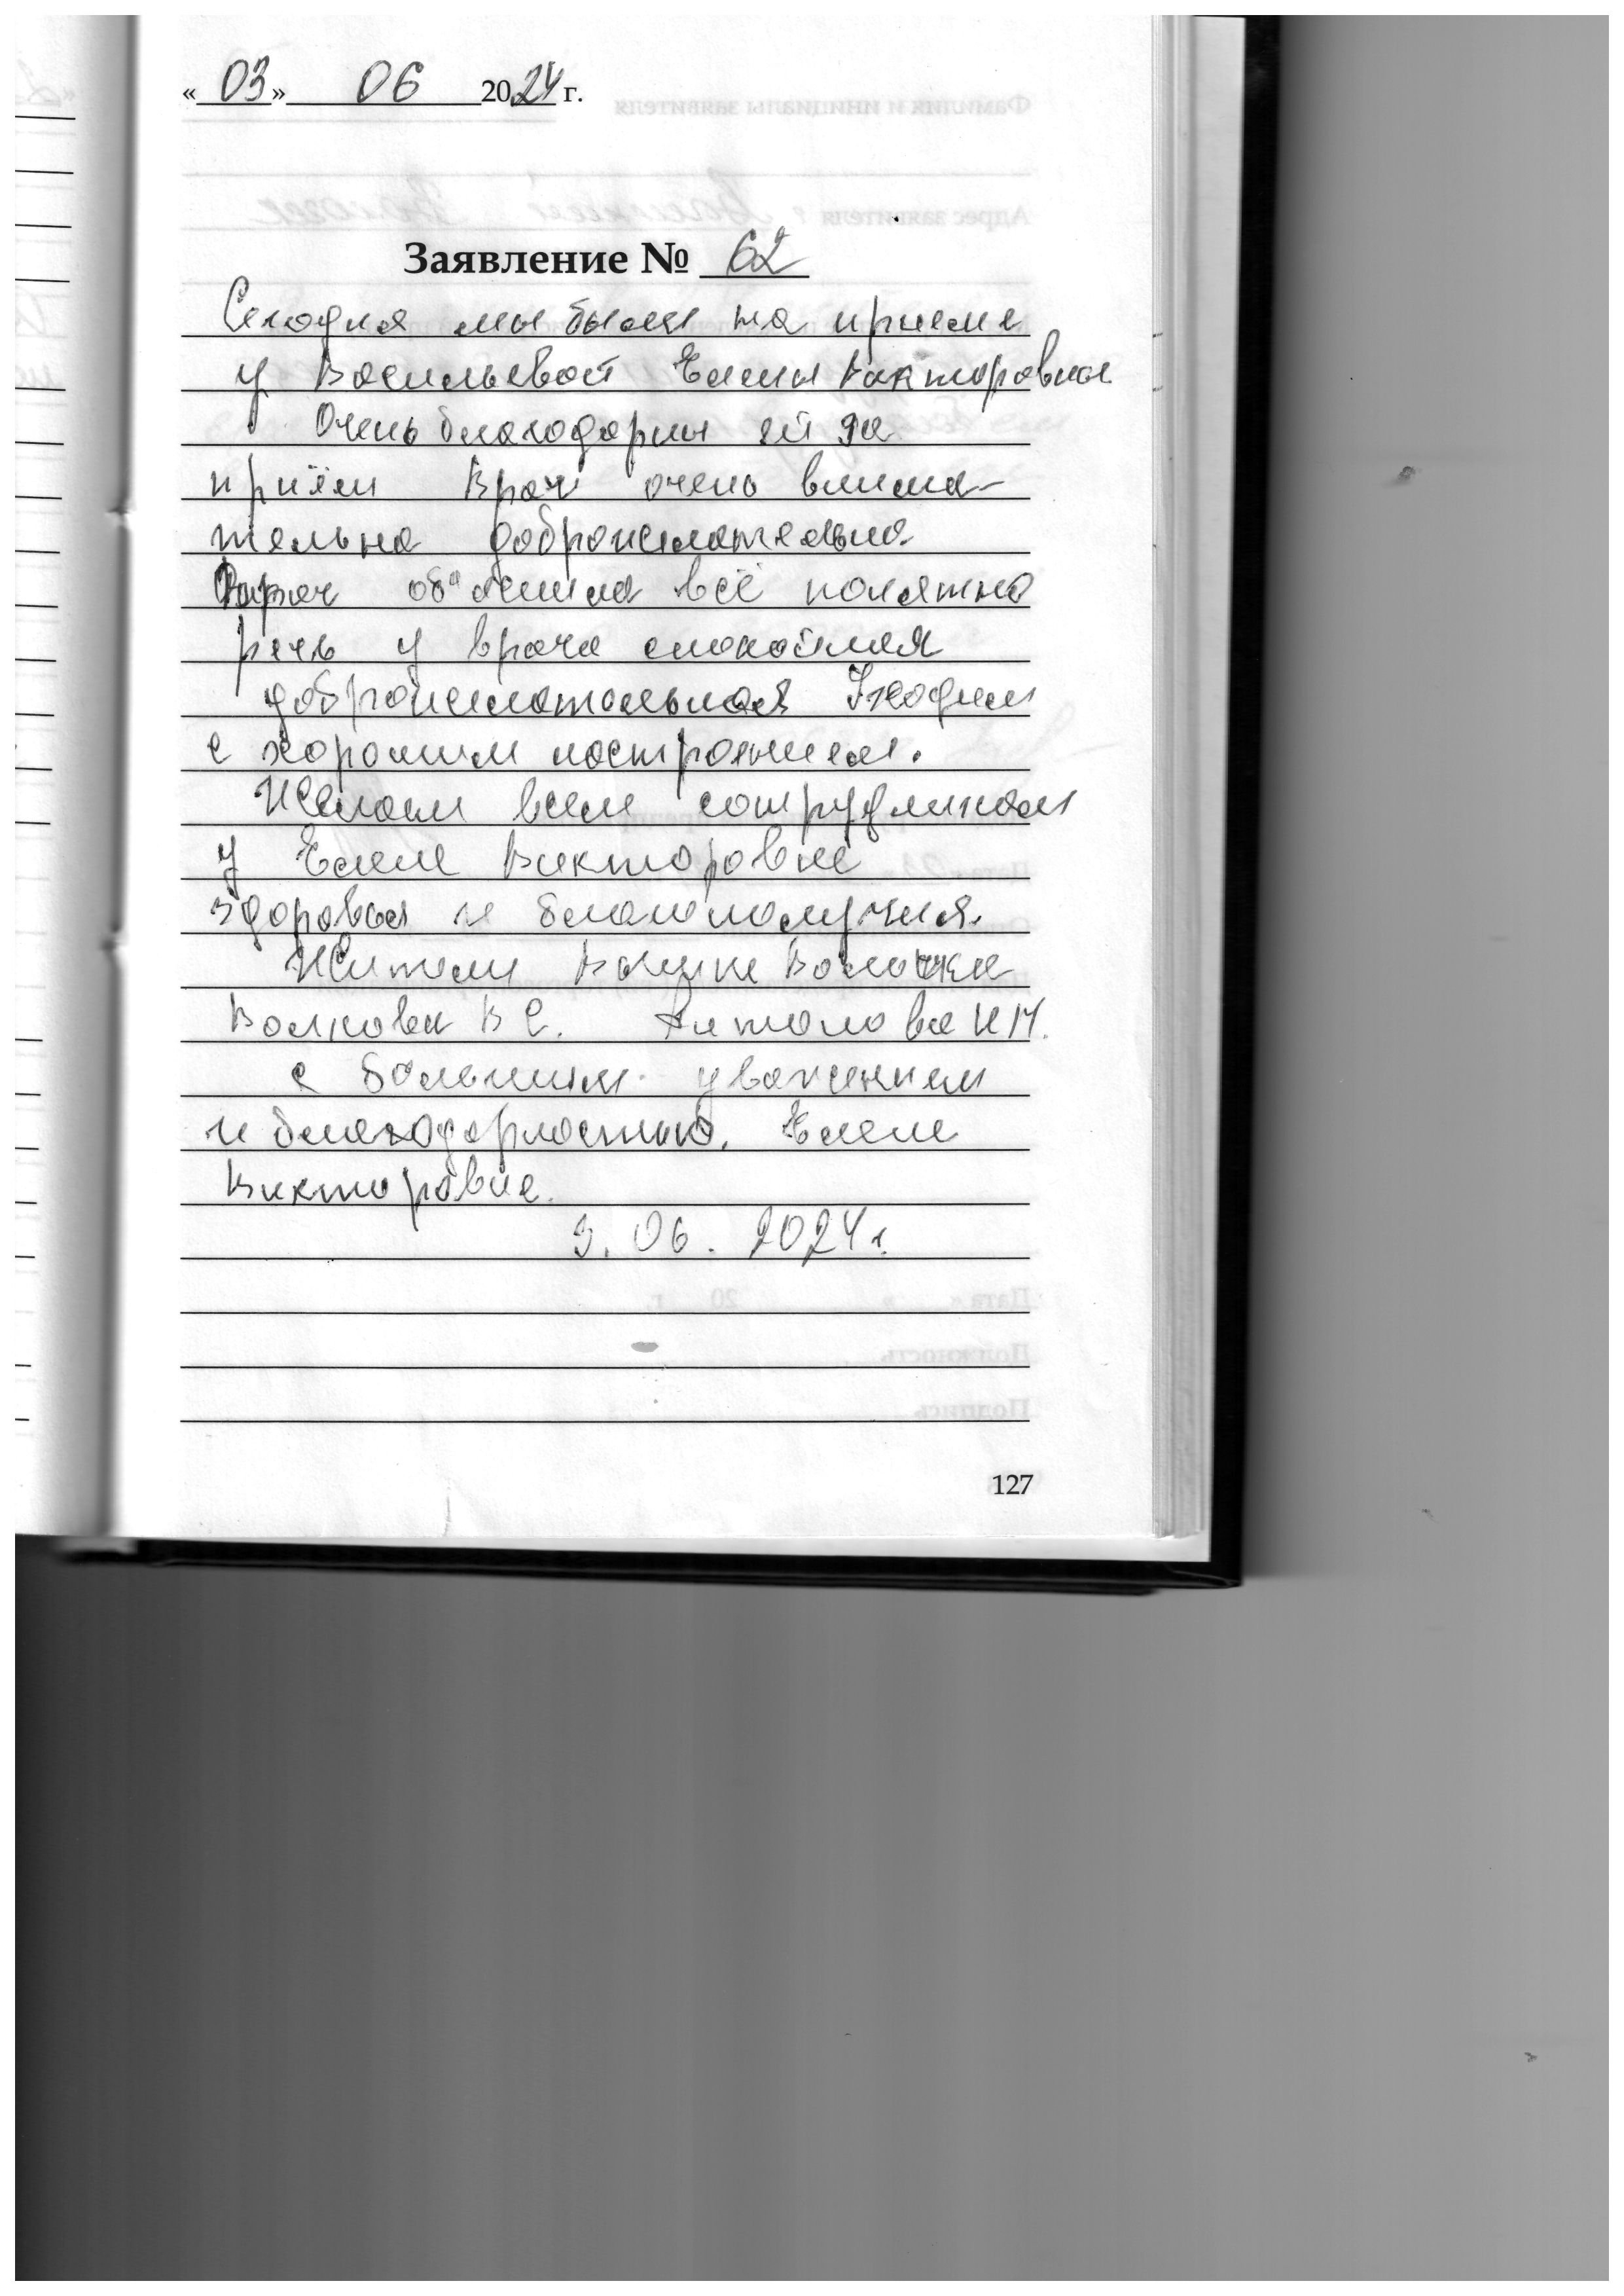 «03» 06 2024 г.
Заявление № 62
Сегодня мы были на приеме
у Васильевой Елены Викторовны
Очень благодарны ей за
приём Врач очень внима-
тельна доброжелательна
Врач объяснила всё понятно
речь у врача спокойная
доброжелательная Уходим
с хорошим настроением.
Желаем всем сотрудникам
у Елене Викторовне
здоровья и благополучия.
Жители Вышне Волочка
Волкова В С. Антонова Н М.
с большим уважением
и благодарностью. Елене
Викторовне.
3. 06. 2024 г.
127